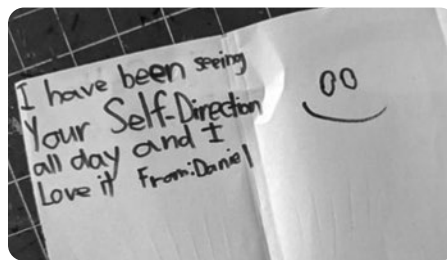 I have been seeing
Your Self-Direction
all day and I
Love it From: Daniel